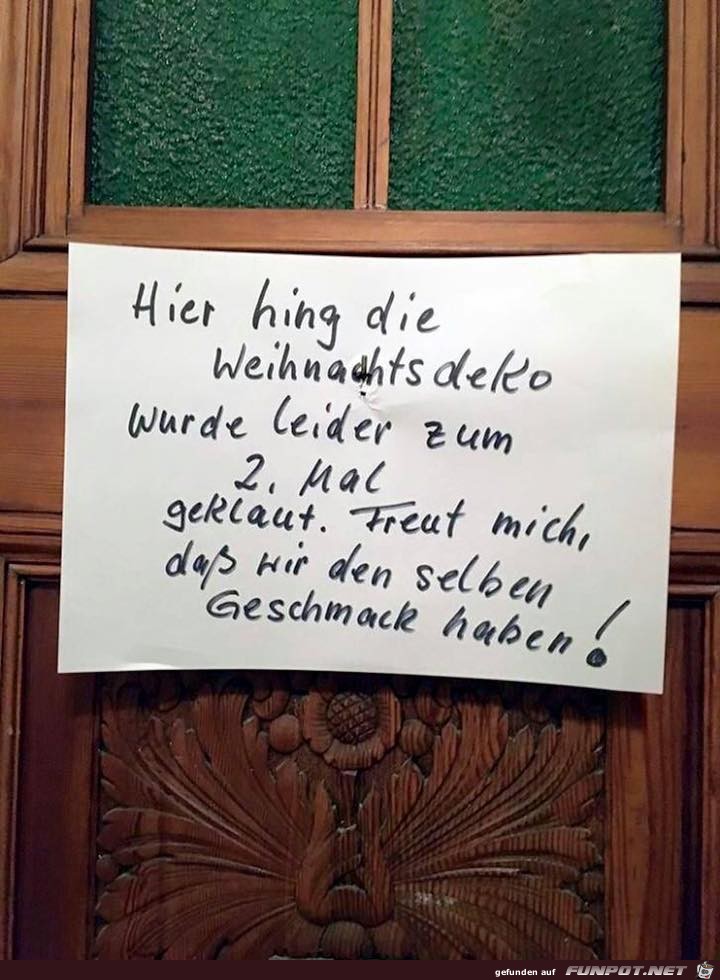 Hier hing die
Weihnachtsdeko
wurde leider zum
2. Mal
geklaut. Freut mich,
daß wir den selben
Geschmack haben!
gefunden auf FUNPOT.NET